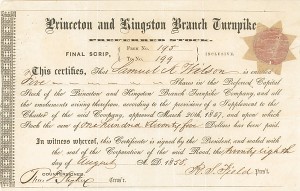 Princeton and Kingston Branch Turnpike
PREFERRED STOCK.
FINAL SCRIP, From No. 195
To No. 199 INCLUSIVE.
This certifies, That Samuel A. Wilson is entitled
Five Shares in the Preferred Capital
Stock of the Princeton and Kingston Branch Turnpike Company, and all
the emoluments arising therefrom, according to the provisions of a Supplement to the
Charter of the said Company, approved March 20th, 1857, and upon which
Stock the sum of one hundred twenty five Dollars has been paid.
In witness whereof, this Certificate is signed by the President, and sealed with
the seal of the Corporation of the said Road, the twenty eighth
day of August A. D. 1858.
COUNTERSIGNED
R. S. Field Pres't.
Treas'r.